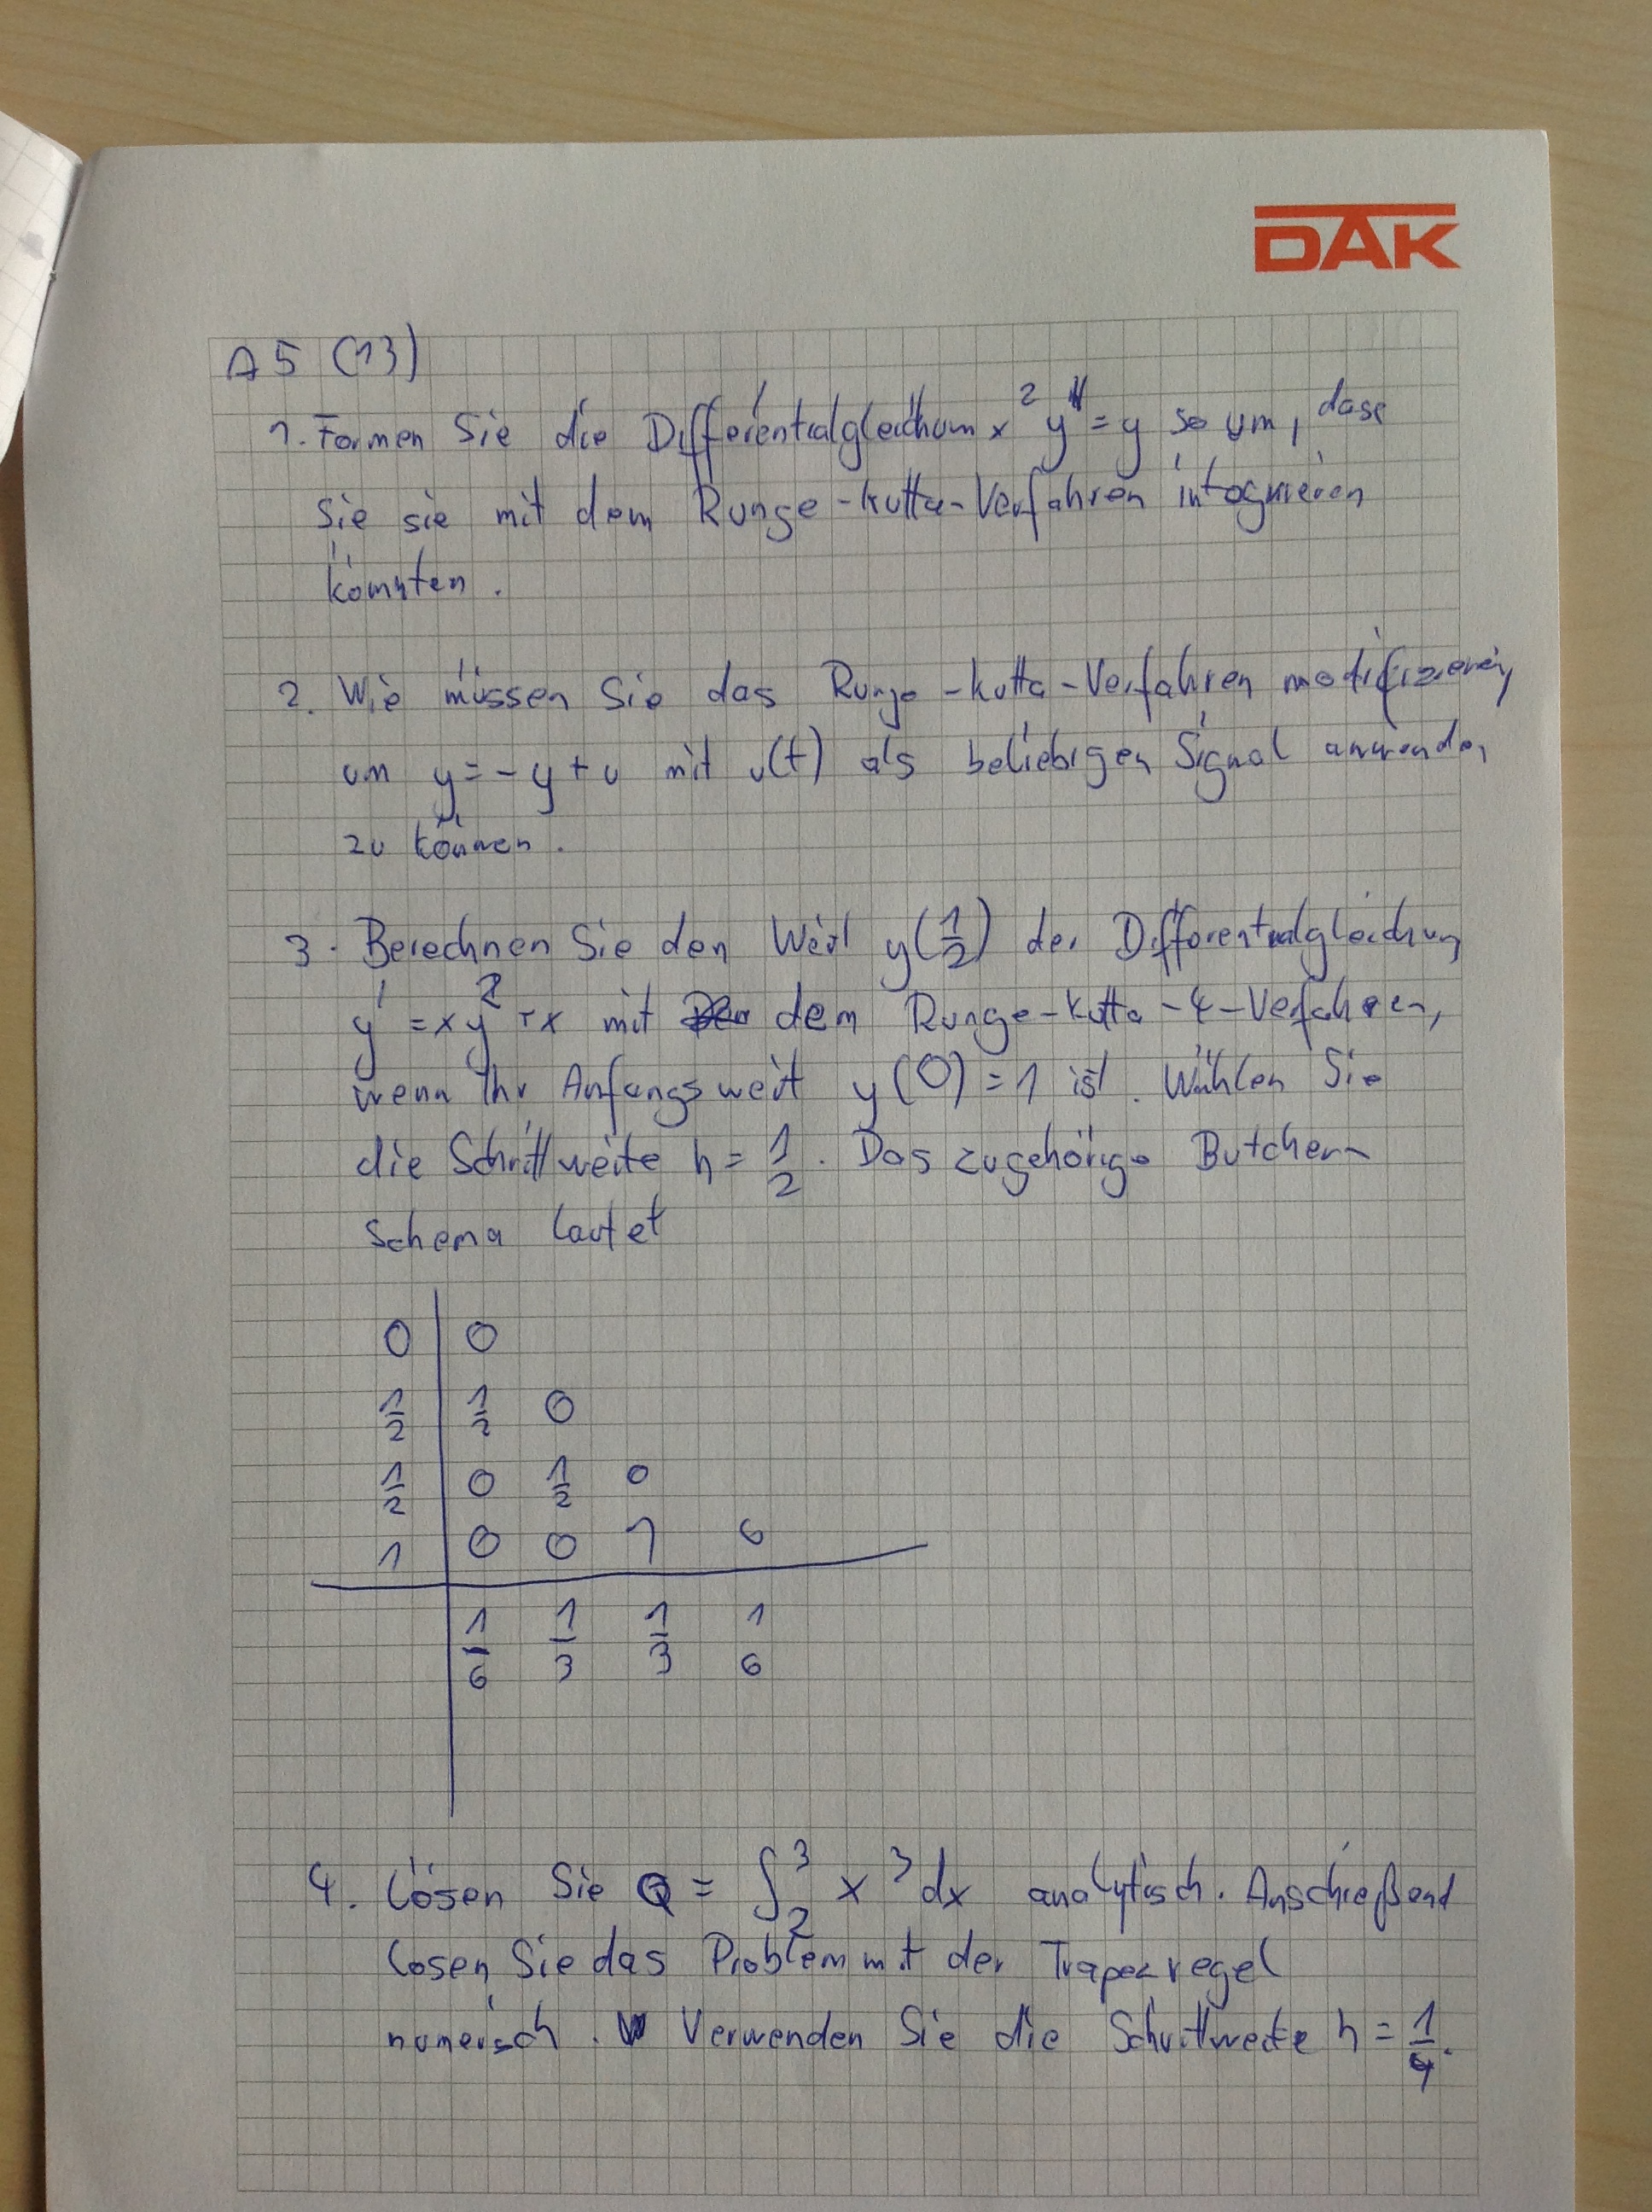 DAK
A5 (13)
1. Formen Sie die Differentialgleichung x² y'' = y so um, dass
Sie sie mit dem Runge-Kutta-Verfahren integrieren
könnten.
2. Wie müssen Sie das Runge-Kutta-Verfahren modifizieren,
um y = -y + u mit u(t) als beliebigen Signal anwenden
zu können.
3. Berechnen Sie den Wert y(1/2) der Differentialgleichung
y' = xy² + x mit dem Runge-Kutta-4-Verfahren,
wenn Ihr Anfangswert y(0) = 1 ist. Wählen Sie
die Schrittweite h = 1/2. Das zugehörige Butcher-
schema lautet
0 | 0
1/2 | 1/2 0
1/2 | 0 1/2 0
1 | 0 0 1 0
1/6 1/3 1/3 1/6
4. Lösen Sie Q = ∫₂³ x³ dx analytisch. Anschießend
lösen Sie das Problem mit der Trapezregel
numerisch. Verwenden Sie die Schrittweite h = 1/4.